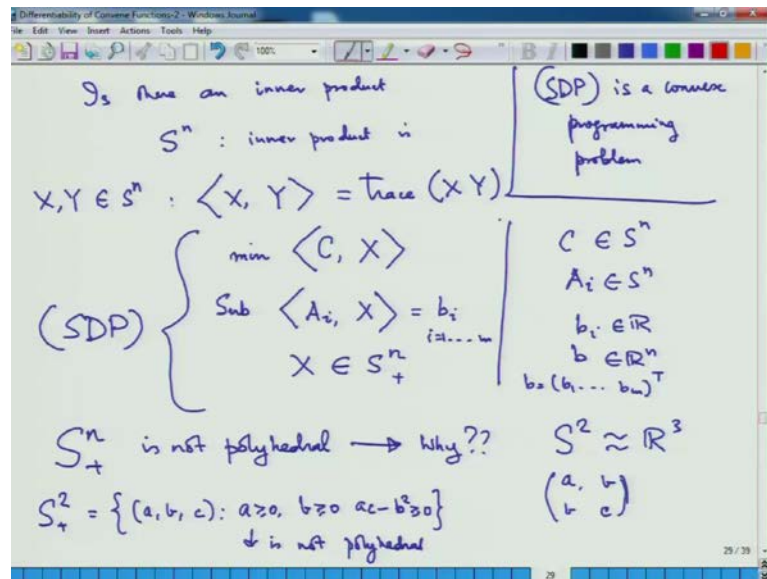 Differentiability of Convene Functions-2 - Windows Journal
File Edit View Insert Actions Tools Help
100%
Is there an inner product
S^n : inner product is
X, Y ∈ S^n : ⟨X, Y⟩ = trace (XY)
(SDP) is a convex
programming
problem
(SDP) { min ⟨C, X⟩
Sub ⟨A_i, X⟩ = b_i
i=1....m
X ∈ S^n_+
C ∈ S^n
A_i ∈ S^n
b_i ∈ ℝ
b ∈ ℝ^n
b=(b_1 ... b_m)^T
S^n_+ is not polyhedral → Why??
S^2 ≈ ℝ^3
S^2_+ = {(a, b, c): a≥0, b≥0 ac-b^2≥0}
↓ is not polyhedral
(a, b
b c)
29 / 39
29